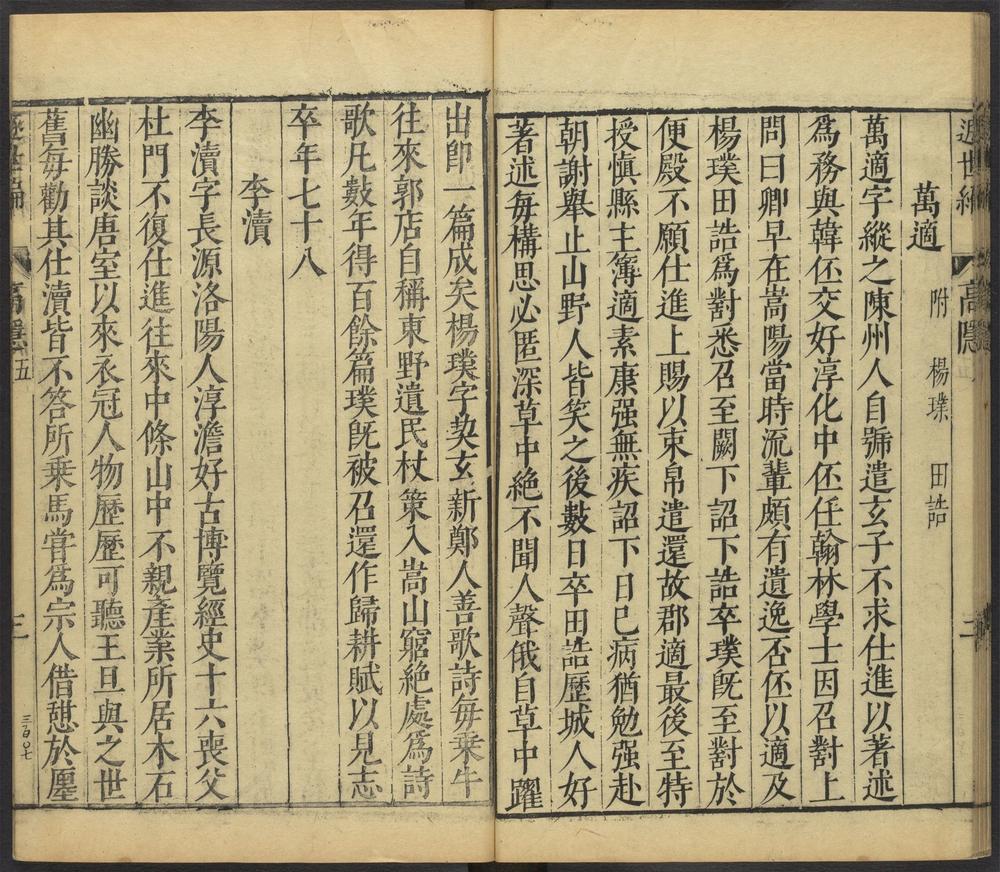 萬適 附 楊璞 田誥
萬適字縱之陳州人自號遣玄子不求仕進以著述
爲務與韓伾交好淳化中伾任翰林學士因召對上
問曰卿早在嵩陽當時流輩頗有遺逸否伾以適及
楊璞田誥爲對悉召至闕下詔下誥卒璞旣至對於
便殿不願仕進上賜以束帛遣還故郡適最後至特
授慎縣主簿適素康强無疾詔下日已病猶勉强赴
朝謝舉止山野人皆笑之後數日卒田誥歷城人好
著述每構思必匿深草中絶不聞人聲俄自草中躍
出卽一篇成矣楊璞字契玄新鄭人善歌詩每乘牛
往來郭店自稱東野遺民杖策入嵩山窮絶處爲詩
歌凡數年得百餘篇璞旣被召還作歸耕賦以見志
卒年七十八
李瀆
李瀆字長源洛陽人淳澹好古博覽經史十六喪父
杜門不復仕進往來中條山中不親產業所居木石
幽勝談唐室以來衣冠人物歷歷可聽王旦與之世
舊每勸其仕瀆皆不答所乘馬嘗爲宗人借憇於廛
高隱 五
三
三百〇七